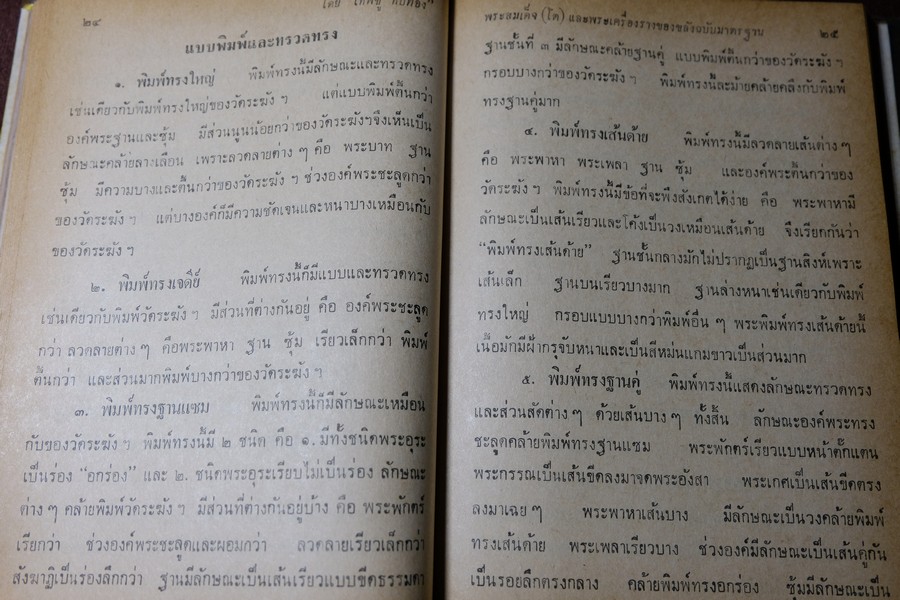 โดย "เทพชู ทับทอง"
๒๔
แบบพิมพ์และทรวดทรง
๑. พิมพ์ทรงใหญ่ พิมพ์ทรงนี้มีลักษณะและทรวดทรง
เช่นเดียวกับพิมพ์ทรงใหญ่ของวัดระฆัง ฯ แต่แบบพิมพ์ตื้นกว่า
องค์พระฐานและซุ้ม มีส่วนนูนน้อยกว่าของวัดระฆังฯจึงเห็นเป็น
ลักษณะคล้ายลางเลือน เพราะลวดลายต่าง ๆ คือ พระบาท ฐาน
ซุ้ม มีความบางและตื้นกว่าของวัดระฆัง ฯ ช่วงองค์พระชะลูดกว่า
ของวัดระฆัง ฯ แต่บางองค์ก็มีความชัดเจนและหนาบางเหมือนกับ
ของวัดระฆัง ฯ
๒. พิมพ์ทรงเจดีย์ พิมพ์ทรงนี้ก็มีแบบและทรวดทรง
เช่นเดียวกับพิมพ์วัดระฆัง ฯ มีส่วนที่ต่างกันอยู่ คือ องค์พระชะลูด
กว่า ลวดลายต่าง ๆ คือพระพาหา ฐาน ซุ้ม เรียวเล็กกว่า พิมพ์
ตื้นกว่า และส่วนมากพิมพ์บางกว่าของวัดระฆัง ฯ
๓. พิมพ์ทรงฐานแซม พิมพ์ทรงนี้ก็มีลักษณะเหมือน
กับของวัดระฆัง ฯ พิมพ์ทรงนี้มี ๒ ชนิด คือ ๑. มีทั้งชนิดพระอุระ
เป็นร่อง "อกร่อง" และ ๒. ชนิดพระอุระเรียบไม่เป็นร่อง ลักษณะ
ต่าง ๆ คล้ายพิมพ์วัดระฆัง ฯ มีส่วนที่ต่างกันอยู่บ้าง คือ พระพักตร์
เรียกว่า ช่วงองค์พระชะลูดและผอมกว่า ลวดลายเรียวเล็กกว่า
สังฆาฏิเป็นร่องลึกกว่า ฐานมีลักษณะเป็นเส้นเรียวแบบขีดธรรมดา
พระสมเด็จ (โต) และพระเครื่องรางของขลังฉบับมาตรฐาน
๒๕
ฐานชั้นที่ ๓ มีลักษณะคล้ายฐานคู่ แบบพิมพ์ตื้นกว่าของวัดระฆัง ฯ
กรอบบางกว่าของวัดระฆัง ฯ พิมพ์ทรงนี้ละม้ายคล้ายคลึงกับพิมพ์
ทรงฐานคู่มาก
๔. พิมพ์ทรงเส้นด้าย พิมพ์ทรงนี้มีลวดลายเส้นต่าง ๆ
คือ พระพาหา พระเพลา ฐาน ซุ้ม และองค์พระตื้นกว่าของ
วัดระฆัง ฯ พิมพ์ทรงนี้มีข้อที่จะพึงสังเกตได้ง่าย คือ พระพาหามี
ลักษณะเป็นเส้นเรียวและโค้งเป็นวงเหมือนเส้นด้าย จึงเรียกกันว่า
"พิมพ์ทรงเส้นด้าย" ฐานชั้นกลางมักไม่ปรากฏเป็นฐานสิงห์เพราะ
เส้นเล็ก ฐานบนเรียวบางมาก ฐานล่างหนาเช่นเดียวกับพิมพ์
ทรงใหญ่ กรอบแบบบางกว่าพิมพ์อื่น ๆ พระพิมพ์ทรงเส้นด้ายนี้
เนื้อมักมีฝ้ากรุจับหนาและเป็นสีหม่นแกมขาวเป็นส่วนมาก
๕. พิมพ์ทรงฐานคู่ พิมพ์ทรงนี้แสดงลักษณะทรวดทรง
และส่วนสัดต่าง ๆ ด้วยเส้นบาง ๆ ทั้งสิ้น ลักษณะองค์พระทรง
ชะลูดคล้ายพิมพ์ทรงฐานแซม พระพักตร์เรียวแบบหน้าตั๊กแตน
พระกรรณเป็นเส้นขีดลงมาจดพระอังสา พระเกศเป็นเส้นขีดตรง
ลงมาเฉย ๆ พระพาหาเส้นบาง มีลักษณะเป็นวงคล้ายพิมพ์
ทรงเส้นด้าย พระเพลาเรียวบาง ช่วงองค์มีลักษณะเป็นเส้นคู่กัน
เป็นรอยลึกตรงกลาง คล้ายพิมพ์ทรงอกร่อง ซุ้มมีลักษณะเป็น